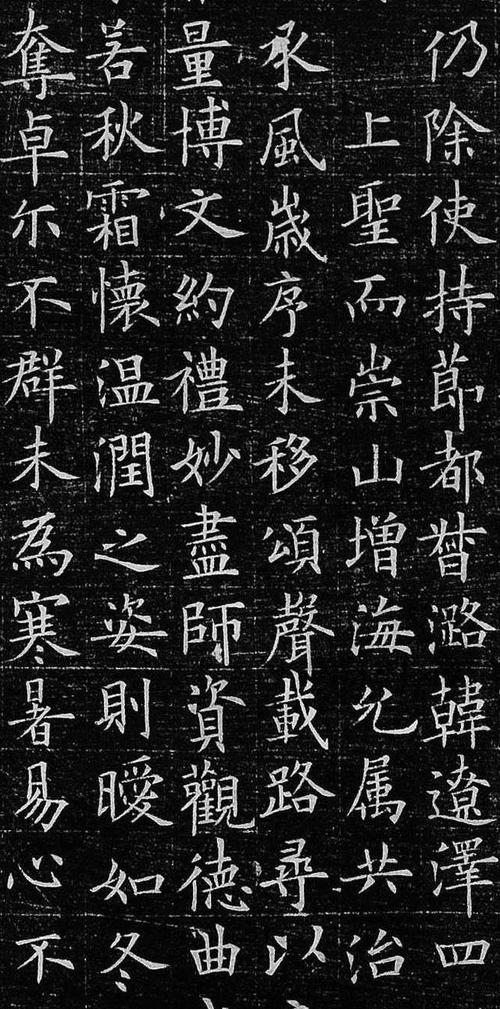 仍除使持節都督潞韓遼澤四
上聖而崇山增海允属共治
承風歲序未移頌聲載路尋以
量博文約禮妙盡師資觀德曲
若秋霜懷温潤之姿則曖如冬
奪卓尓不群未為寒暑易心不